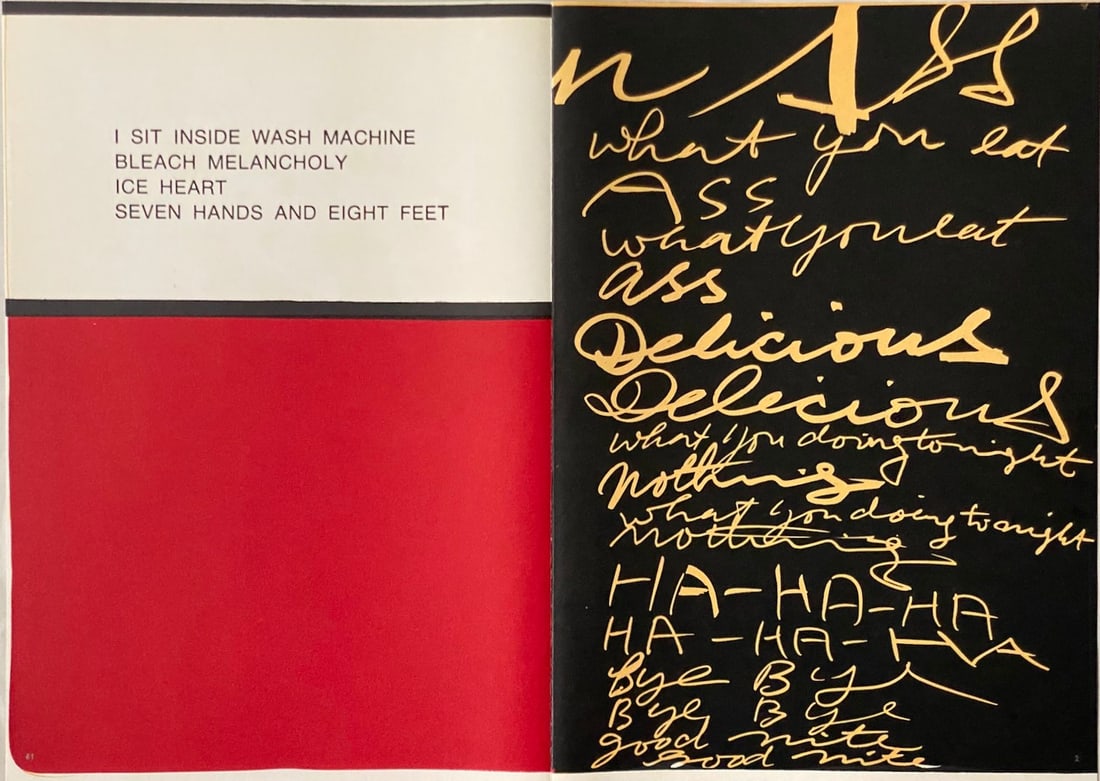 I SIT INSIDE WASH MACHINE
BLEACH MELANCHOLY
ICE HEART
SEVEN HANDS AND EIGHT FEET
n ASS
what you eat
ASS
what you eat
ass
Delicious
Delicious
what you doing tonight
nothing
what you doing tonight
nothing
HA-HA-HA
HA-HA-HA
Bye Bye
Bye Bye
good nite
good nite